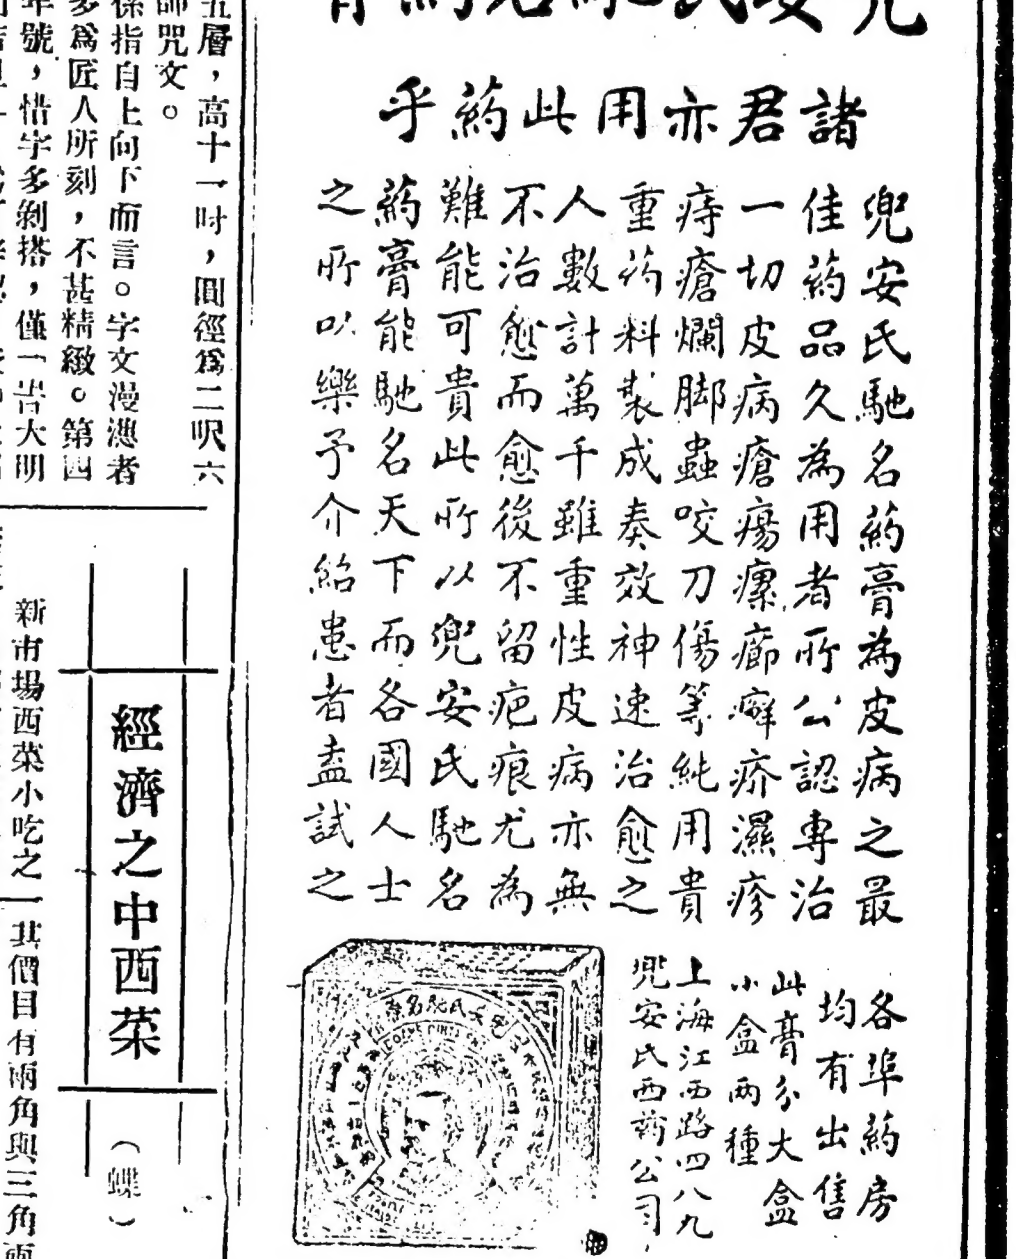 諸君亦用此葯乎
兜安氏馳名葯膏為皮病之最
佳葯品久為用者所公認專治
一切皮病瘡瘍瘰癤癬疥濕疹
痔瘡爛脚蟲咬刀傷等純用貴
重葯料製成奏效神速治愈之
人數計萬千雖重性皮病亦無
不治愈而愈後不留疤痕尤為
難能可貴此所以兜安氏馳名
葯膏能馳名天下而各國人士
之所以樂予介紹患者盍試之
各埠葯房
均有出售
此膏分大盒
小盒兩種
上海江西路四八九
兜安氏西葯公司
五層，高十一吋，圓徑爲二呎六
師咒文。
係指自上向下而言。字文漫漶者
多爲匠人所刻，不甚精緻。第四
年號，惜字多剝搭，僅「昔大明
經濟之中西菜
（蝶）
新市場西菜小吃之一
其價目有兩角與三角兩